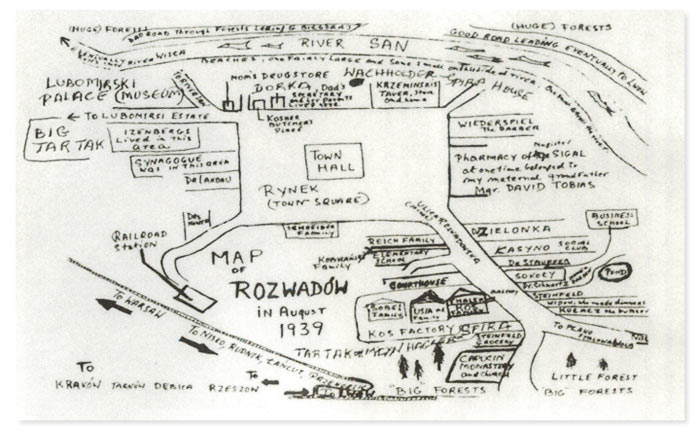 (HUGE) FORESTS
BAD ROAD THROUGH FORESTS LEADING TO BILGORAJ
(HUGE) FORESTS
RIVER SAN
GOOD ROAD LEADING EVENTUALLY TO LWOW
EVENTUALLY RIVER WISLA
BEACHES, one FAIRLY LARGE and some small on
LUBOMIRSKI
PALACE (MUSEUM)
TO RIVER SAN
MOM'S DRUGSTORE
DORKA, Dad's
SECRETARY
KOSHER
BUTCHER'S
PLACE
WACHHOLDER
KRZEMINSKI'S
TAVER, Store
and home
SPIRA HOUSE
TO LUBOMIRSI ESTATE
BIG
TARTAK
IZENBERGS
Lived in this
area
SYNAGOGUE
WAS IN THIS AREA
DR LANDAU
TOWN
HALL
RYNEK
(TOWN SQUARE)
WIEDERSPIEL
THE BARBER
Magister
PHARMACY of SIGAL
at one time belonged to
my maternal grandfather
Mgr. DAVID TOBIAS
RAILROAD
STATION
SCHNEIDER
FAMILY
ULICA ROZWADOWSKA
DZIELONKA
BUSINESS
SCHOOL
REICH FAMILY
ELEMENTARY
SCHOOL
FAMILY
KASYNO SOCIAL
CLUB
DR STAUBER
SOKOLY
POND
STEINFELD
MAP
OF
ROZWADÓW
in AUGUST
1939
COURTHOUSE
FAMILY
KOS FACTORY SPIRA
STEINFELD
GROCERY
TARTAK
CAPUCIN
MONASTERY
and CHURCH
TO WARSAW
TO NISKO, RUDNIK, LANCUT,
TO
KRAKÓW TARNÓW DEBICA RZESZOW
TO
TO LWOW
"BIG" FORESTS
LITTLE FOREST
"BIG" FORESTS